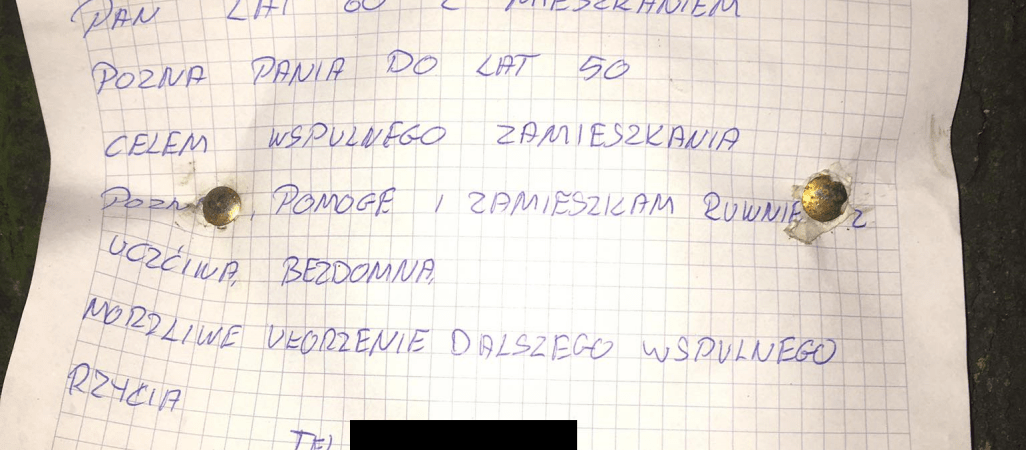 PAN LAT 60 Z MIESZKANIEM
POZNA PANIA DO LAT 50
CELEM WSPULNEGO ZAMIESZKANIA
POMOGE I ZAMIESZKAM
UCZĆIWA, BEZDOMNA,
MORZLIWE UŁORZENIE DALSZEGO WSPULNEGO
RZYCIA
TEL